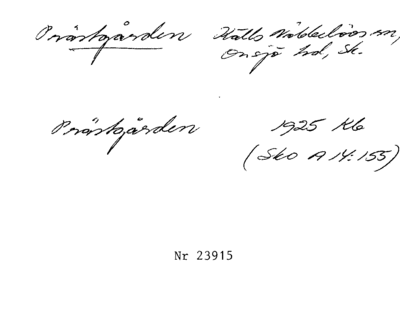 Prästgården Källs Nöbbelövs sn,
Onsjö hd, Sk.
Prästgården 1925 Kb
(Sko A 14:155)
Nr 23915